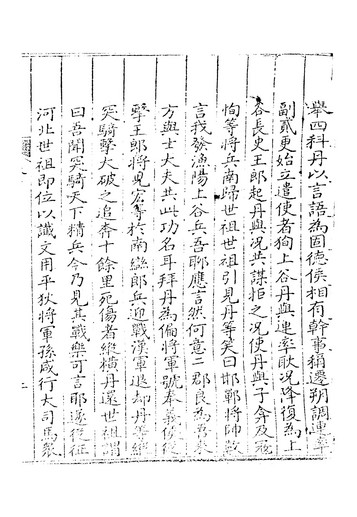 舉四科丹以言語爲固德侯相有幹事稱遷朔調連率
副貳更始立遣使者徇上谷丹與連率耿况降復爲上
谷長史王郎起丹與况共謀拒之况使丹與子弇及寇
恂等將兵南歸世祖世祖引見丹等笑曰邯鄲將帥數
言我發漁陽上谷兵吾聊應言然何意二郡良爲吾來
方與士大夫共此功名耳拜丹爲偏將軍號奉義侯從
擊王郎將兒宏等於南䜌郎兵迎戰漢軍退却丹等縱
突騎擊大破之追奔十餘里死傷者縱横丹還世祖謂
曰吾聞突騎天下精兵今乃見其戰樂可言耶遂從征
河北世祖即位以讖文用平狄將軍孫咸行大司馬衆